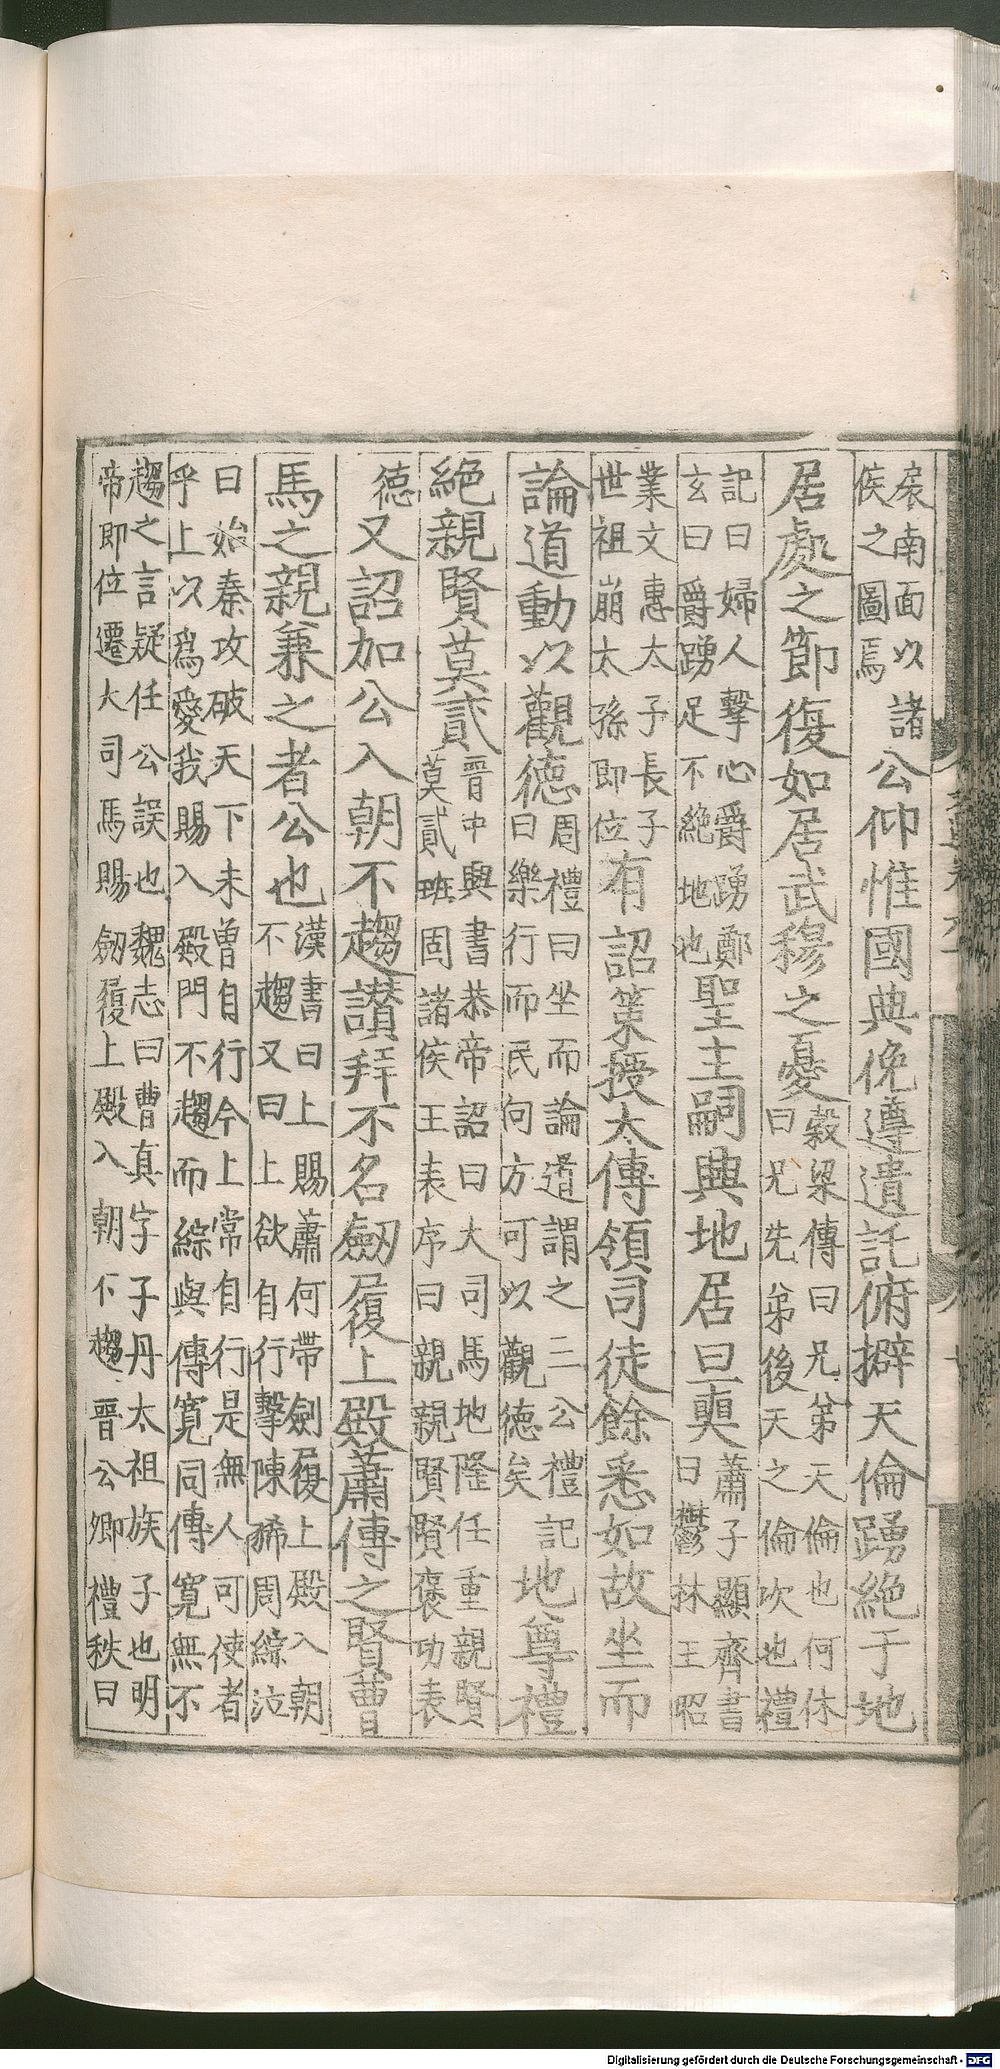 扆南面以諸
侯之圖焉
公仰惟國典俛遵遺託俯擗天倫踴絶于地
居處之節復如居武穆之憂
穀梁傳曰兄弟天倫也何休
曰兄先弟後天之倫次也禮
記曰婦人擊心爵踴鄭
玄曰爵踴足不絶地也
聖主嗣興地居旦奭
蕭子顯齊書
曰鬱林王昭
業文惠太子長子
世祖崩太孫即位
有詔策授太傅領司徒餘悉如故坐而
論道動以觀德
周禮曰坐而論道謂之三公禮記
曰樂行而民向方可以觀德矣
地尊禮
絶親賢莫貳
晉中興書恭帝詔曰大司馬地隆任重親賢
莫貳班固諸侯王表序曰親親賢賢褒功表
德
又詔加公入朝不趨讃拜不名劒履上殿蕭傅之賢曹
馬之親兼之者公也
漢書曰上賜蕭何帶劍履上殿入朝
不趨又曰上欲自行擊陳狶周緤泣
曰始秦攻破天下未曾自行今上常自行是無人可使者
乎上以爲愛我賜入殿門不趨而緤與傅寬同傳寬無不
趨之言疑任公誤也魏志曰曹真字子丹太祖族子也明
帝即位遷大司馬賜劒履上殿入朝不趨晉公卿禮秩曰
Digitalisierung gefördert durch die Deutsche Forschungsgemeinschaft - DFG